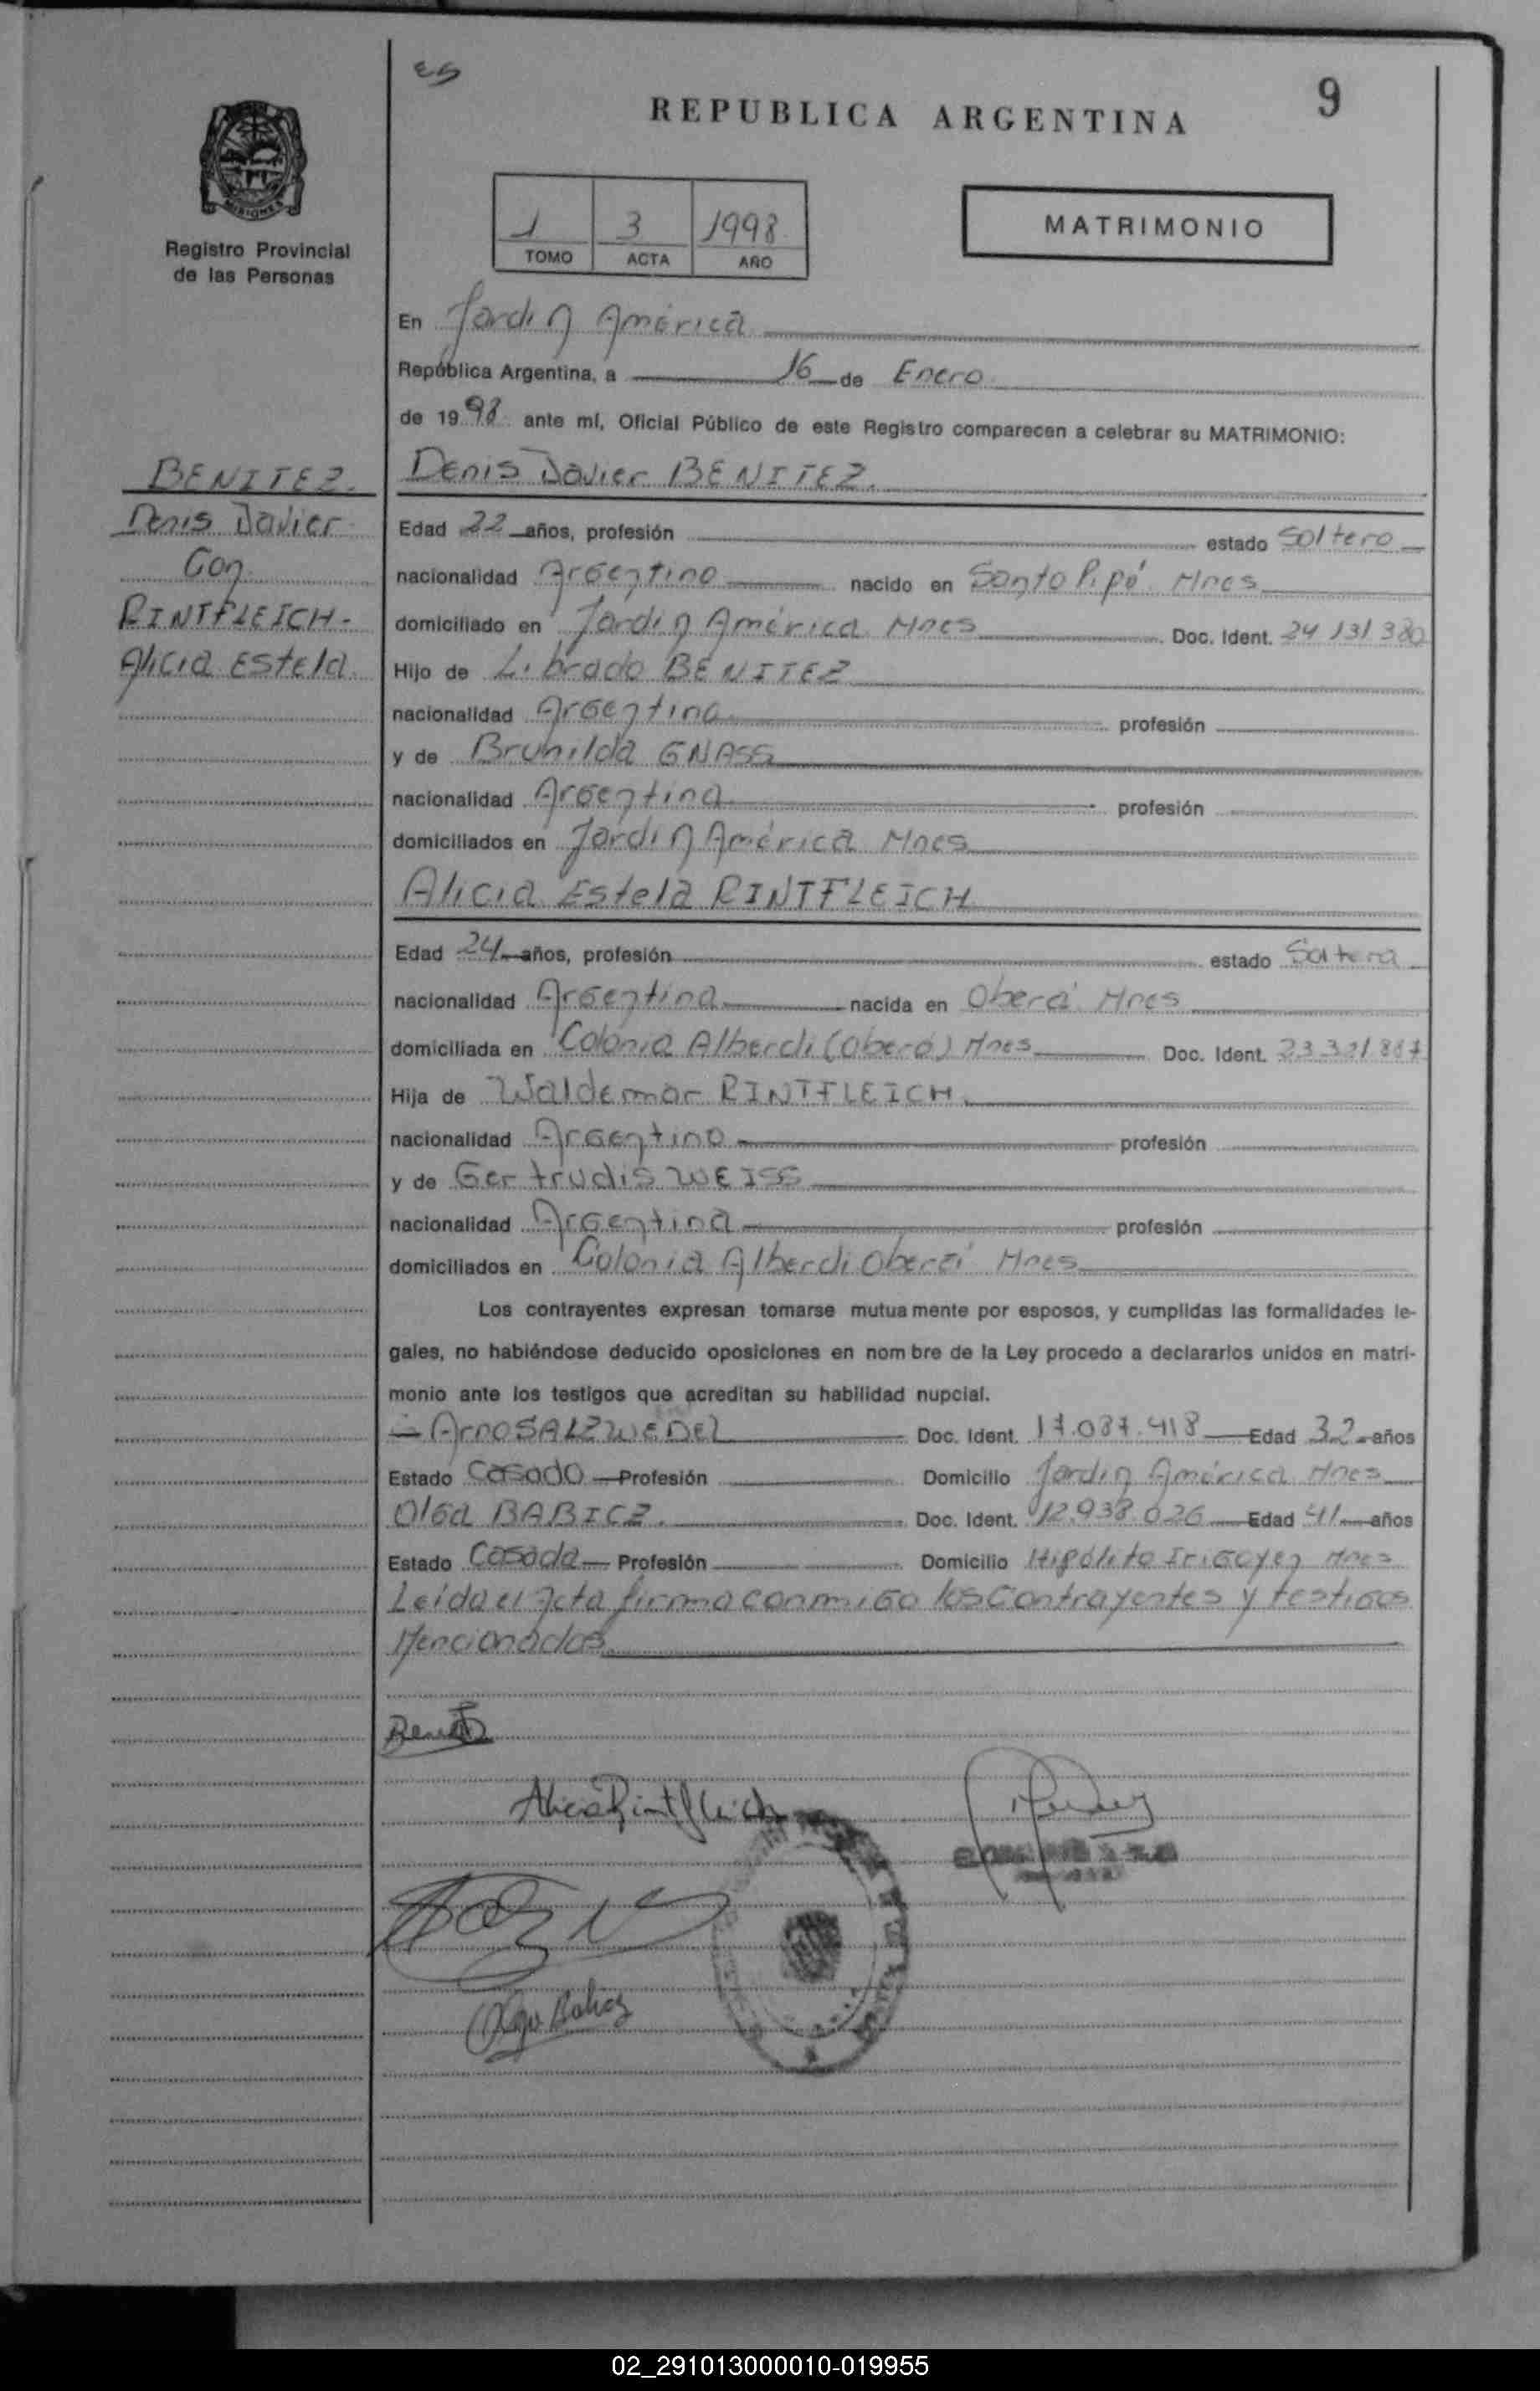 9
REPUBLICA ARGENTINA
MISIONES
Registro Provincial
de las Personas
1 3 1998
TOMO ACTA AÑO
MATRIMONIO
En Jardín América
República Argentina, a 16 de Enero
de 1998 ante mí, Oficial Público de este Registro comparecen a celebrar su MATRIMONIO:
BENITEZ.
Denis Javier
Con
RINTFLEICH-
Alicia Estela.
Denis Javier BENITEZ.
Edad 22 años, profesión estado Soltero
nacionalidad Argentino nacido en Santo Pipó Mnes
domiciliado en Jardín América Mnes Doc. Ident. 24 131 380
Hijo de Librado BENITEZ
nacionalidad Argentina profesión
y de Brunilda GNASS
nacionalidad Argentina profesión
domiciliados en Jardín América Mnes
Alicia Estela RINTFLEICH
Edad 24 años, profesión estado Soltera
nacionalidad Argentina nacida en Oberá Mnes
domiciliada en Colonia Alberdi (Oberá) Mnes Doc. Ident.
Hija de Waldemar RINTFLEICH.
nacionalidad Argentino profesión
y de Gertrudis WEISS
nacionalidad Argentina profesión
domiciliados en Colonia Alberdi Oberá Mnes
Los contrayentes expresan tomarse mutuamente por esposos, y cumplidas las formalidades le-
gales, no habiéndose deducido oposiciones en nombre de la Ley procedo a declararlos unidos en matri-
monio ante los testigos que acreditan su habilidad nupcial.
Arno SALZWEDEL Doc. Ident. 17.087.418 Edad 32 años
Estado Casado Profesión Domicilio Jardín América Mnes
Olga BABICZ. Doc. Ident. 12.938.026 Edad 41 años
Estado Casada Profesión Domicilio Hipólito Irigoyen Mnes
Leída el Acta firma conmigo los Contrayentes y testigos
Mencionados
Alicia Rintfleich
Olga Babicz
02_291013000010-019955